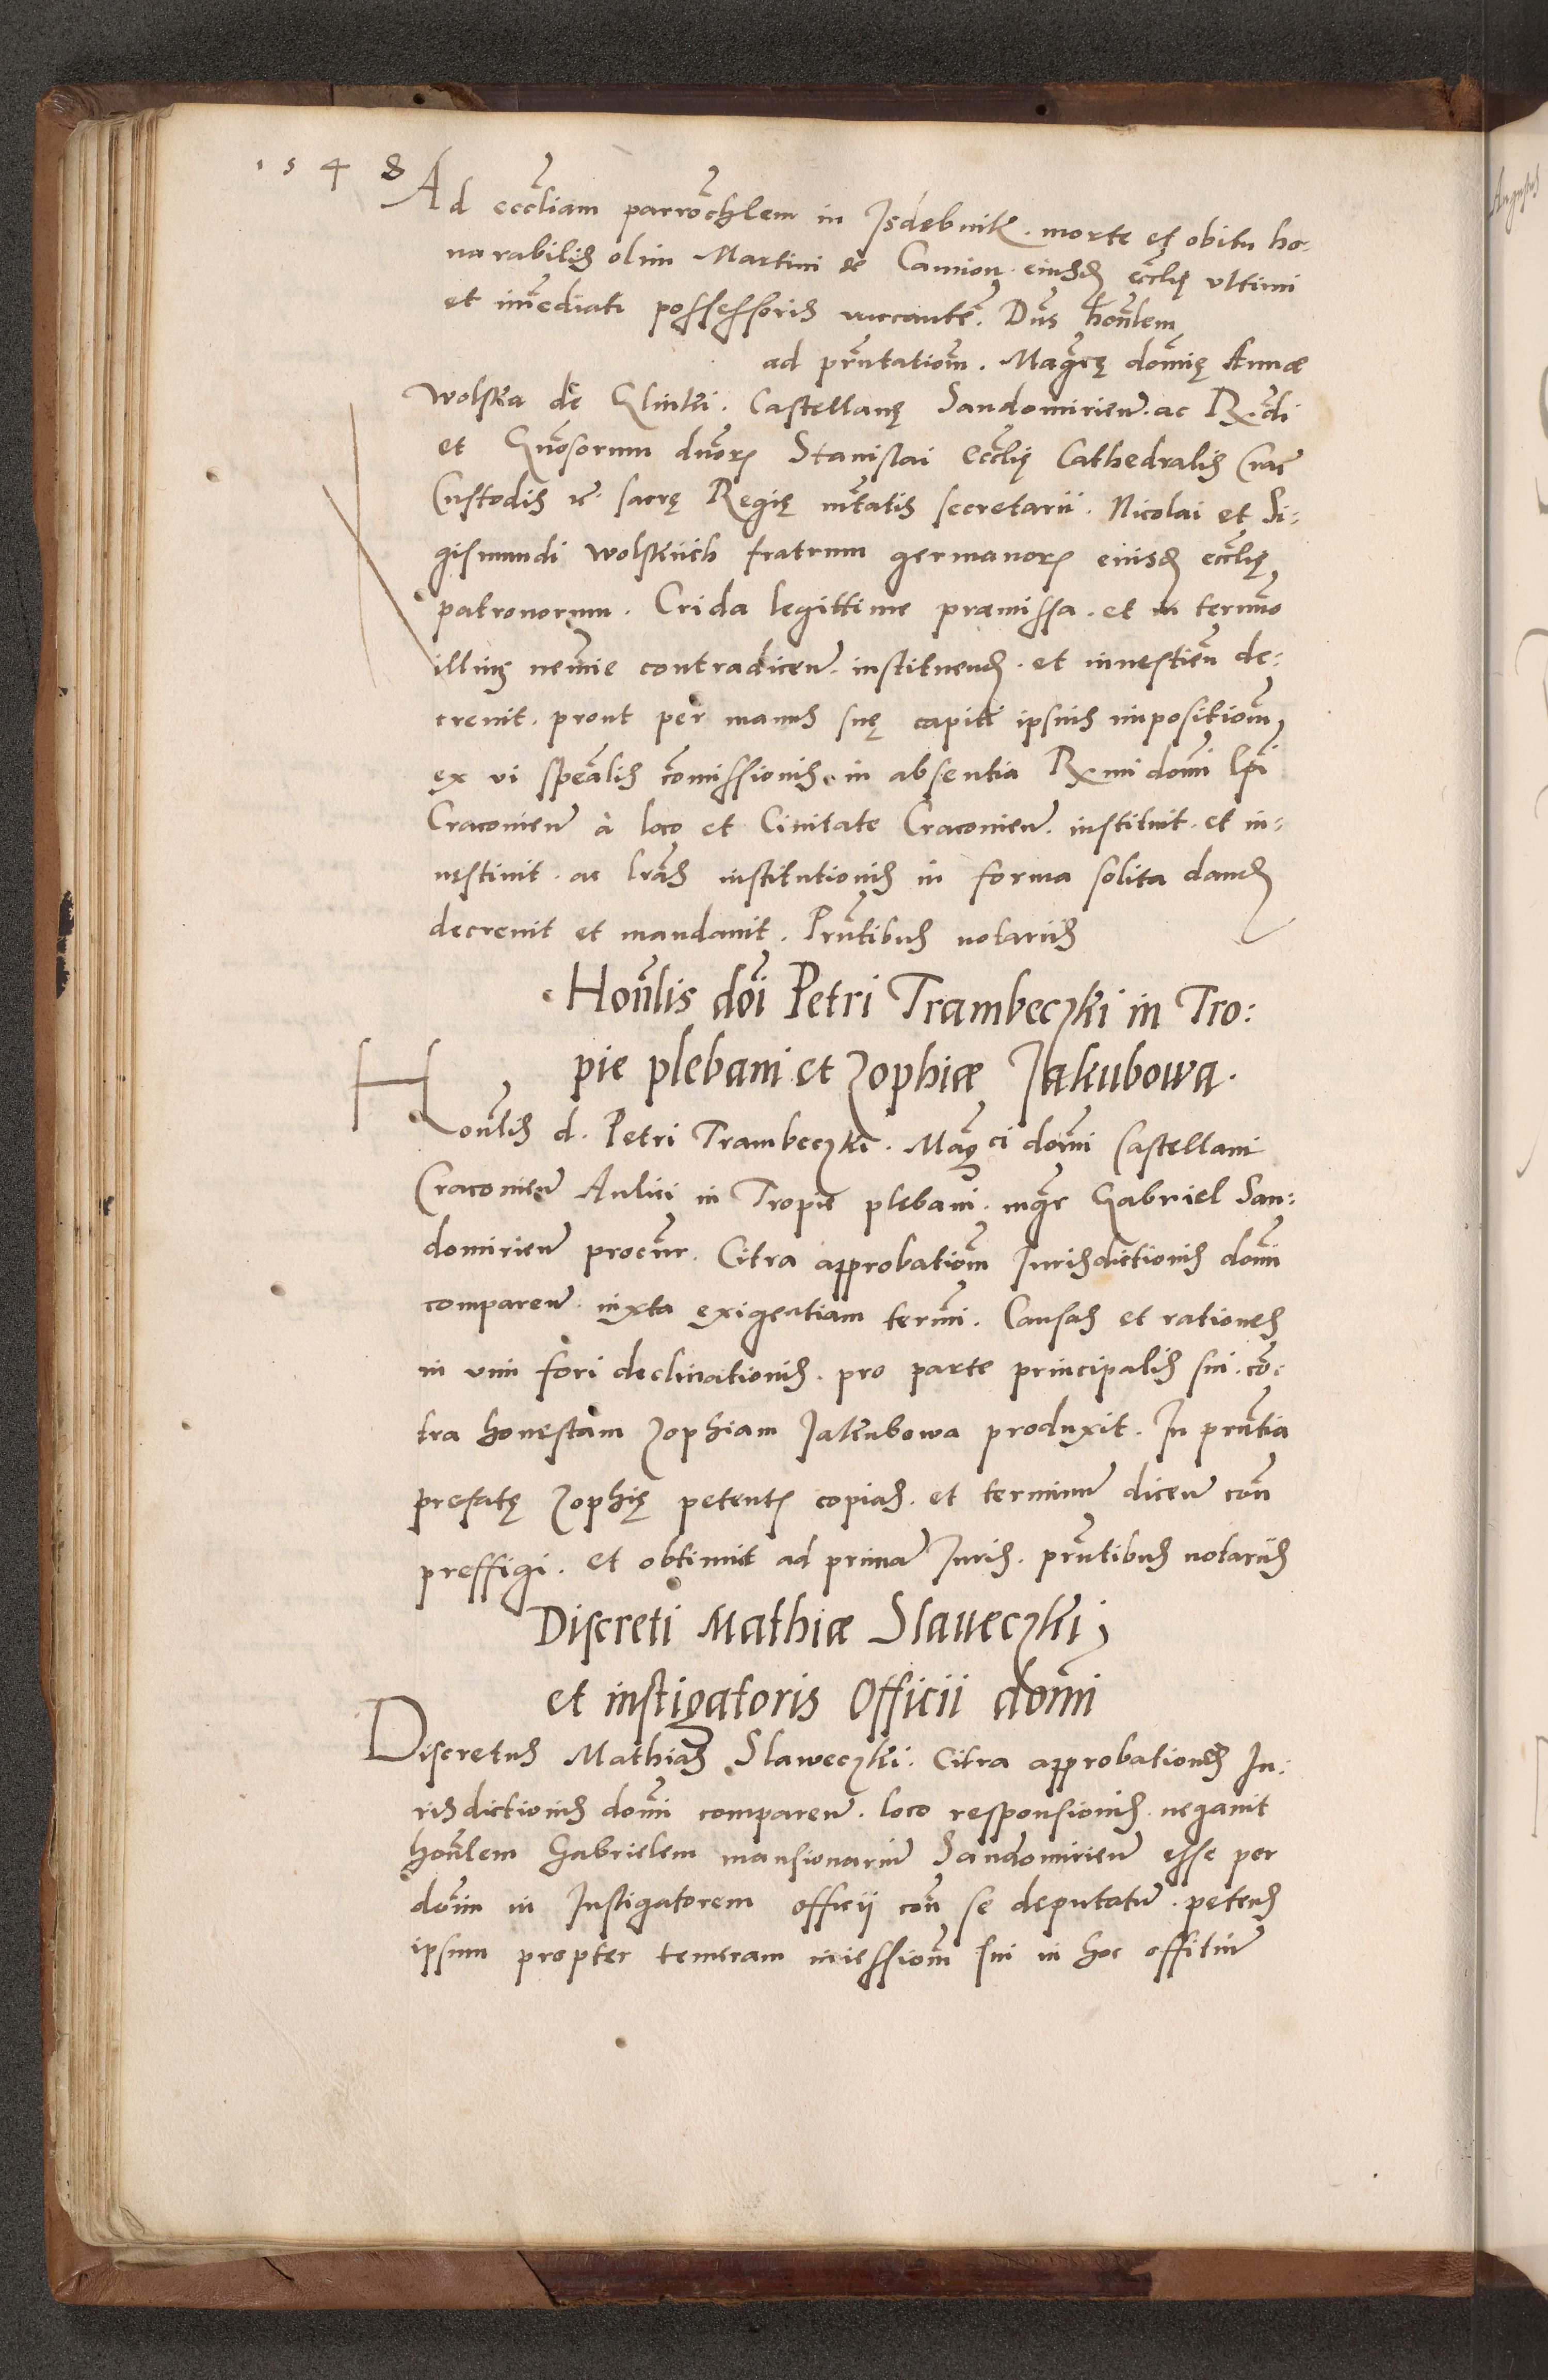 1548
Ad eccl̃iam parrochl̃em in Isdebnik. morte et obitu ho-
norabilis olim Martini de Camion. eiusd. eccl̃ię ultimi
et im̃ediati possessoris vacantẽ. Dñs honl̃em
ad pñtationẽ. Mag̃cę dominę Annæ
Wolska de Glinki. Castellanę Sandomirien̄. ac R.di
et Gn̄osorum dn̄oꝝ Stanislai eccl̃ię Cathedralis Crac̄
Custodis &c. sacrę Regię mtatis secretarii. Nicolai et Si-
gismundi Wolskich fratrum germanoꝝ eiusd. eccl̃ię
patronorum. Crida legittime præmissa. et in termĩo
illius nemine contradicen̄. instituend. et investien̄ de-
crevit. prout per manus suę capiti ipsius impositionẽ
ex vi spealis com̃issionis. in absentia R.mi domi Ep̃i
Cracovien̄ à loco et Civitate Cracovien̄. instituit. et in-
vestivit. ac l̃ras institutionis in forma solita dand.
decrevit et mandavit. Pñtibus notariis
Hon̄lis doi Petri Trambeczki in Tro:
pie plebani et Zophiæ Jakubowa.
Hon̄lis d. Petri Trambeczki. Mag̃ci domi Castellani
Cracovien̄ Aulici in Tropie plebani. mgr̃ Gabriel San-
domirien̄ procur̃. Citra approbationẽ Jurisdictionis domi
comparen̄. iuxta exigentiam termi. Causas et rationes
in vim fori declinationis. pro parte principalis sui. cõ-
tra honestam Zophiam Jakubowa produxit. In pñtia
prefatę Zophię petentꝭ copias. et terminũ dicen̄ con̄
preffigi. et obtinuit ad primã Juris. pñtibus notariis
Discreti Mathiæ Slaveczki
et instigatoris Officii domi
Discretus Mathias Slaweczki. Citra approbationẽs Ju-
risdictionis domi comparen̄. loco responsionis. negavit
hon̄lem Gabrielem mansionariũ Sandomirien̄ esse per
dom̃ in Instigatorem officij con̄ se deputatũ. petens
ipsum propter temeram iniessionẽ sui in hoc offitiũ